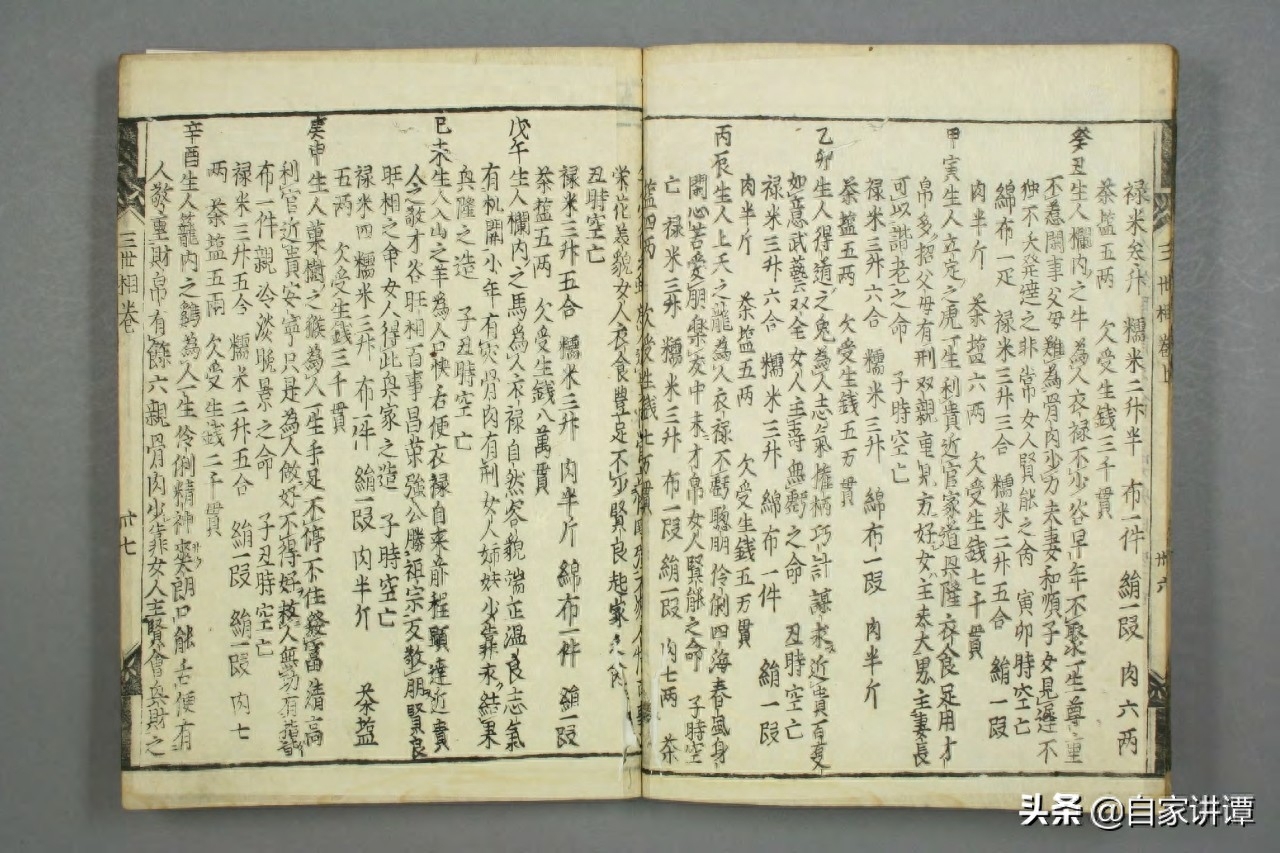 禄米叁升　糯米二升半　布一件　絹一叚　肉六两
茶塩五两　欠受生錢三千貫
癸丑生人欄内之牛為人衣禄不少咎早年不聚一生尊重
不惹閑事父母難為骨肉少力夫妻和順子女見遲不
独不大発達之非常女人賢能之命　寅卯時空亡
綿布一疋　禄米三升三合　糯米二升五合　絹一叚
肉半斤　茶塩六两　欠受生錢七千貫
甲寅生人立定之虎一生利貴近官家道興隆衣食足用才
帛多招父母有刑双親重見方好女主夫大男主妻長
可以諧老之命　子時空亡
禄米三升六合　糯米三升　綿布一叚　肉半斤
茶塩五两　欠受生錢五万貫
乙卯生人得道之兔為人志氣權柄巧計謀求近貴百夏
如意武藝双全女人主壽無虧之命　丑時空亡
禄米三升六合　糯米三升　綿布一件　絹一叚
肉半斤　茶塩五两　欠受生錢五万貫
丙辰生人上天之龍為人衣禄不虧聰明伶俐四海春風身
閑心苦愛朋樂友中未才帛女人賢能之命　子時空
亡　禄米三升　糯米三升　布一叚　絹一叚　肉七两　茶
塩四两　欠受生錢
榮花装貌女人衣食豊足不少賢良起家之命
丑時空亡
禄米三升五合　糯米三升　肉半斤　綿布一件　絹一叚
茶塩五两　欠受生錢八萬貫
戊午生人欄内之馬為人衣禄自然容貌端正温良志氣
有机關小年有災骨肉有刑女人姉妹少靠来結果
興隆之造　子丑時空亡
己未生人入山之羊為人口快舌便衣禄自来前程顕達近貴
人之敬才各旺相百事昌荣強公勝祖宗友敬朋賢良
旺相之命女人得此興家之造　子時空亡
禄米四　糯米三升　布一件　絹一叚　肉半斤　茶塩
五两　欠受生錢三千貫
庚申生人菓樹之猴為人一生手足不停不住發富清高
利官近貴安寧只是為人做好不得好救人無功有
布一件親冷淡晩景之命　子丑時空亡
禄米三升五合　糯米二升五合　絹一叚　絹一叚　肉七
两　茶塩五兩　欠受生錢二千貫
辛酉生人籠内之鷄為人一生伶俐精神爽朗口能舌便有
人敬重財帛有餘六親骨肉少靠女人主賢會興財之
三世相卷上
卅六
三世相卷
卅七
头条 @自家讲谭